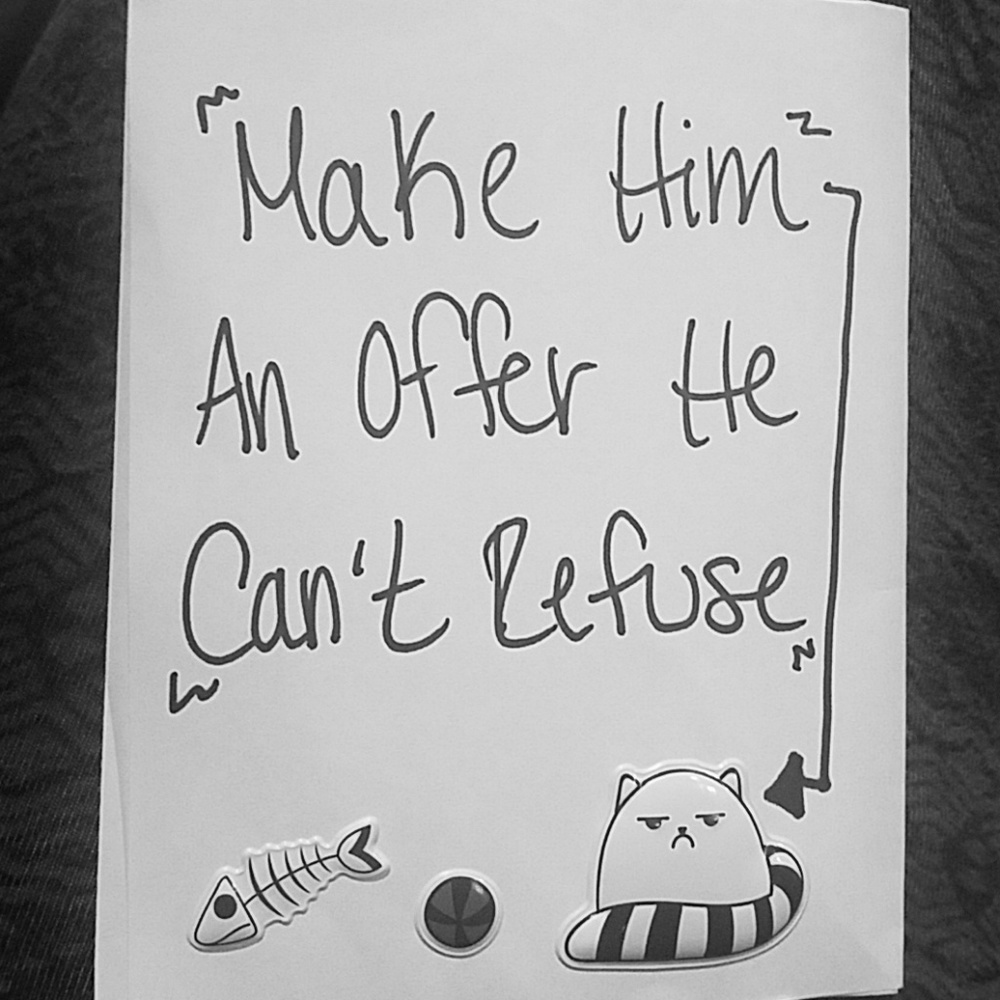 Make Him
An Offer He
Can't Refuse